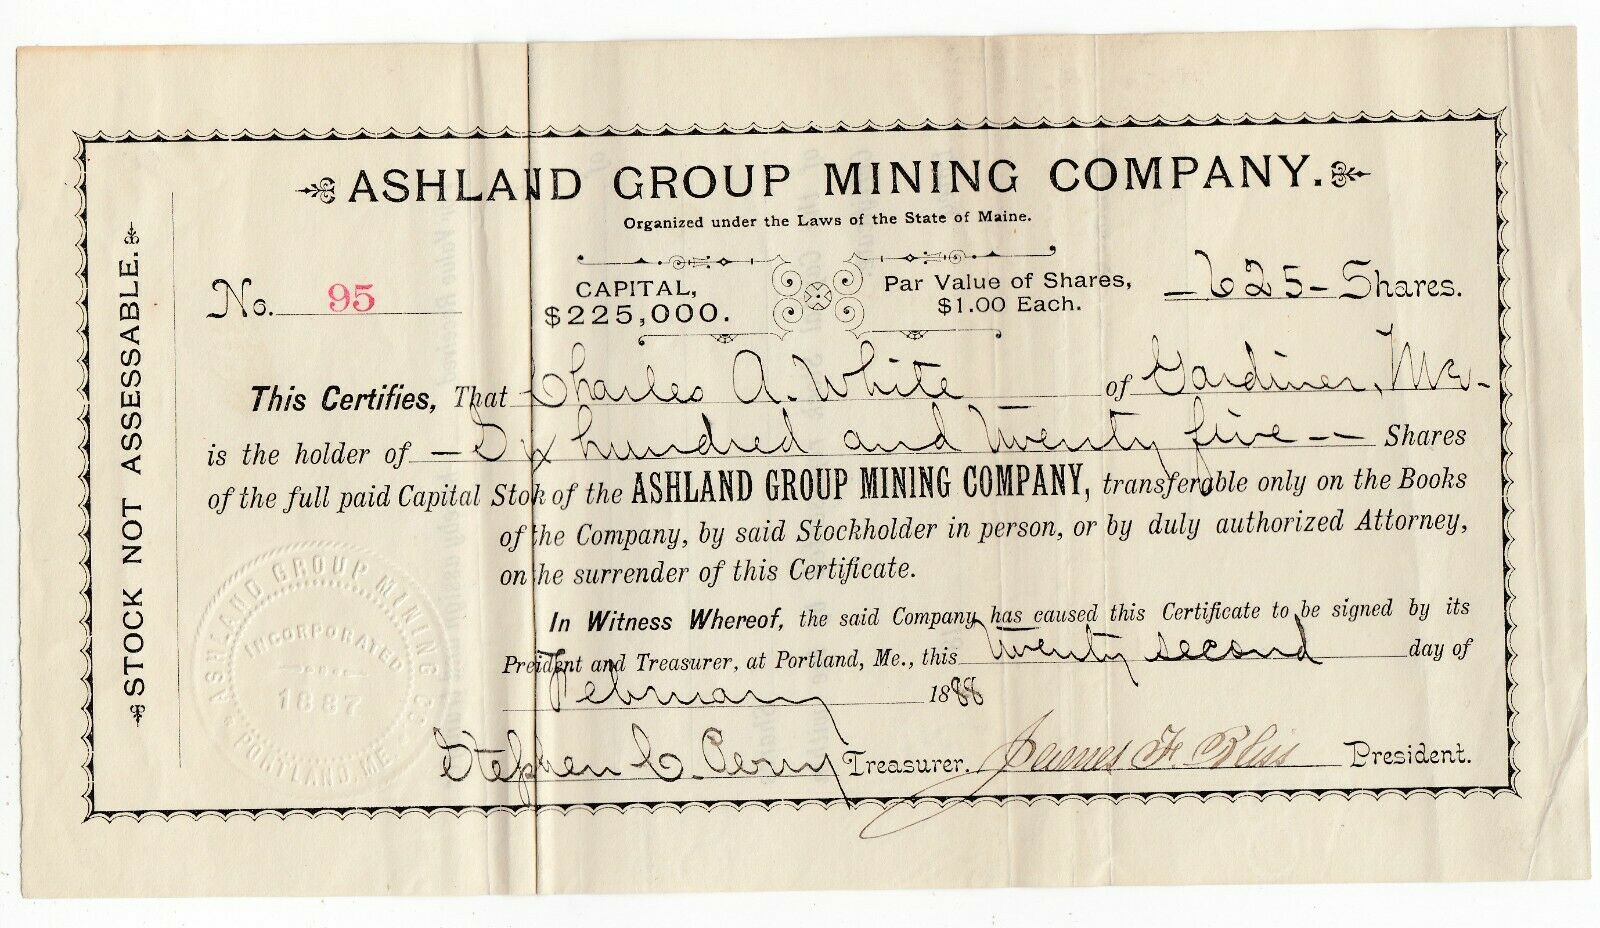 ASHLAND GROUP MINING COMPANY.
Organized under the Laws of the State of Maine.
STOCK NOT ASSESSABLE.
No. 95
CAPITAL,
$225,000.
Par Value of Shares,
$1.00 Each.
-625- Shares.
This Certifies, That Charles A. White of Gardiner, Me-
is the holder of - Six hundred and twenty five -- Shares
of the full paid Capital Stok of the ASHLAND GROUP MINING COMPANY, transferable only on the Books
of the Company, by said Stockholder in person, or by duly authorized Attorney,
on he surrender of this Certificate.
In Witness Whereof, the said Company has caused this Certificate to be signed by its
Preident and Treasurer, at Portland, Me., this twenty second day of
February 1888
Stephen C. Perry Treasurer. James F. Bliss President.
ASHLAND GROUP MINING CO.
INCORPORATED
1887
PORTLAND, ME.